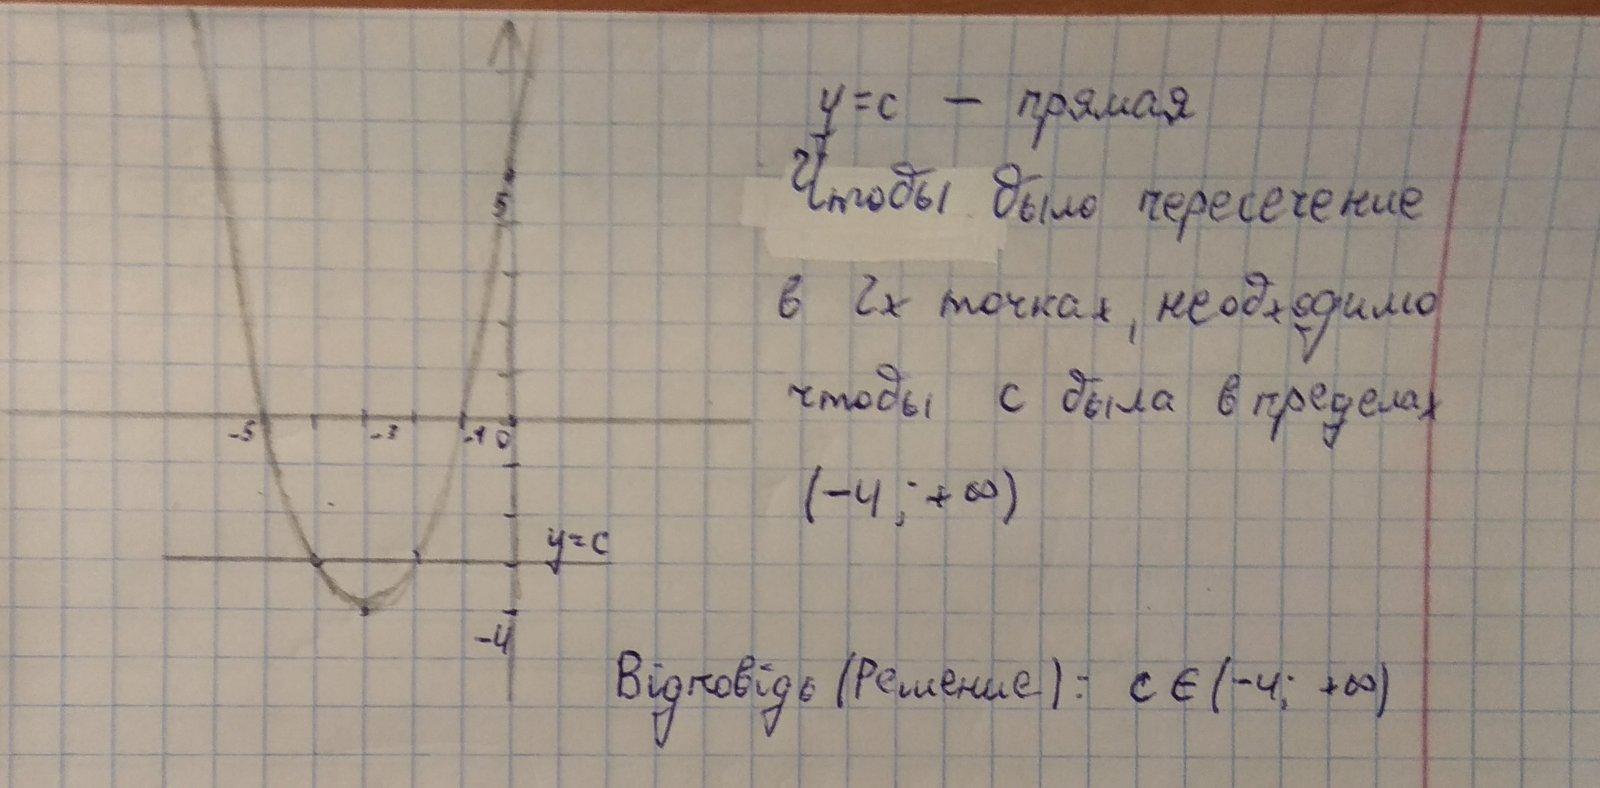 y=c — прямая
Чтобы было пересечение
в 2х точках, необходимо
чтобы с была в пределах
(-4; +∞)
5
-5 -3 -1 0
y=c
-4
Відповідь (Решение): c ∈ (-4; +∞)